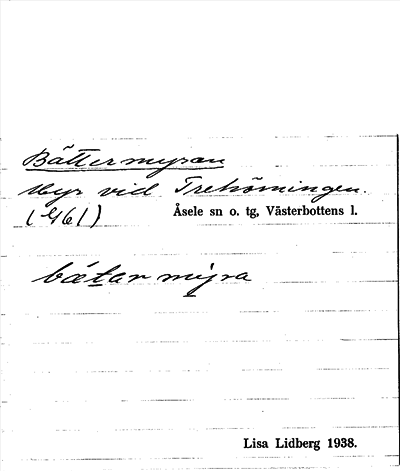 Bättermyran
Myr vid Trehörningen.
(461)
Åsele sn o. tg, Västerbottens l.
bætar mẏra
Lisa Lidberg 1938.